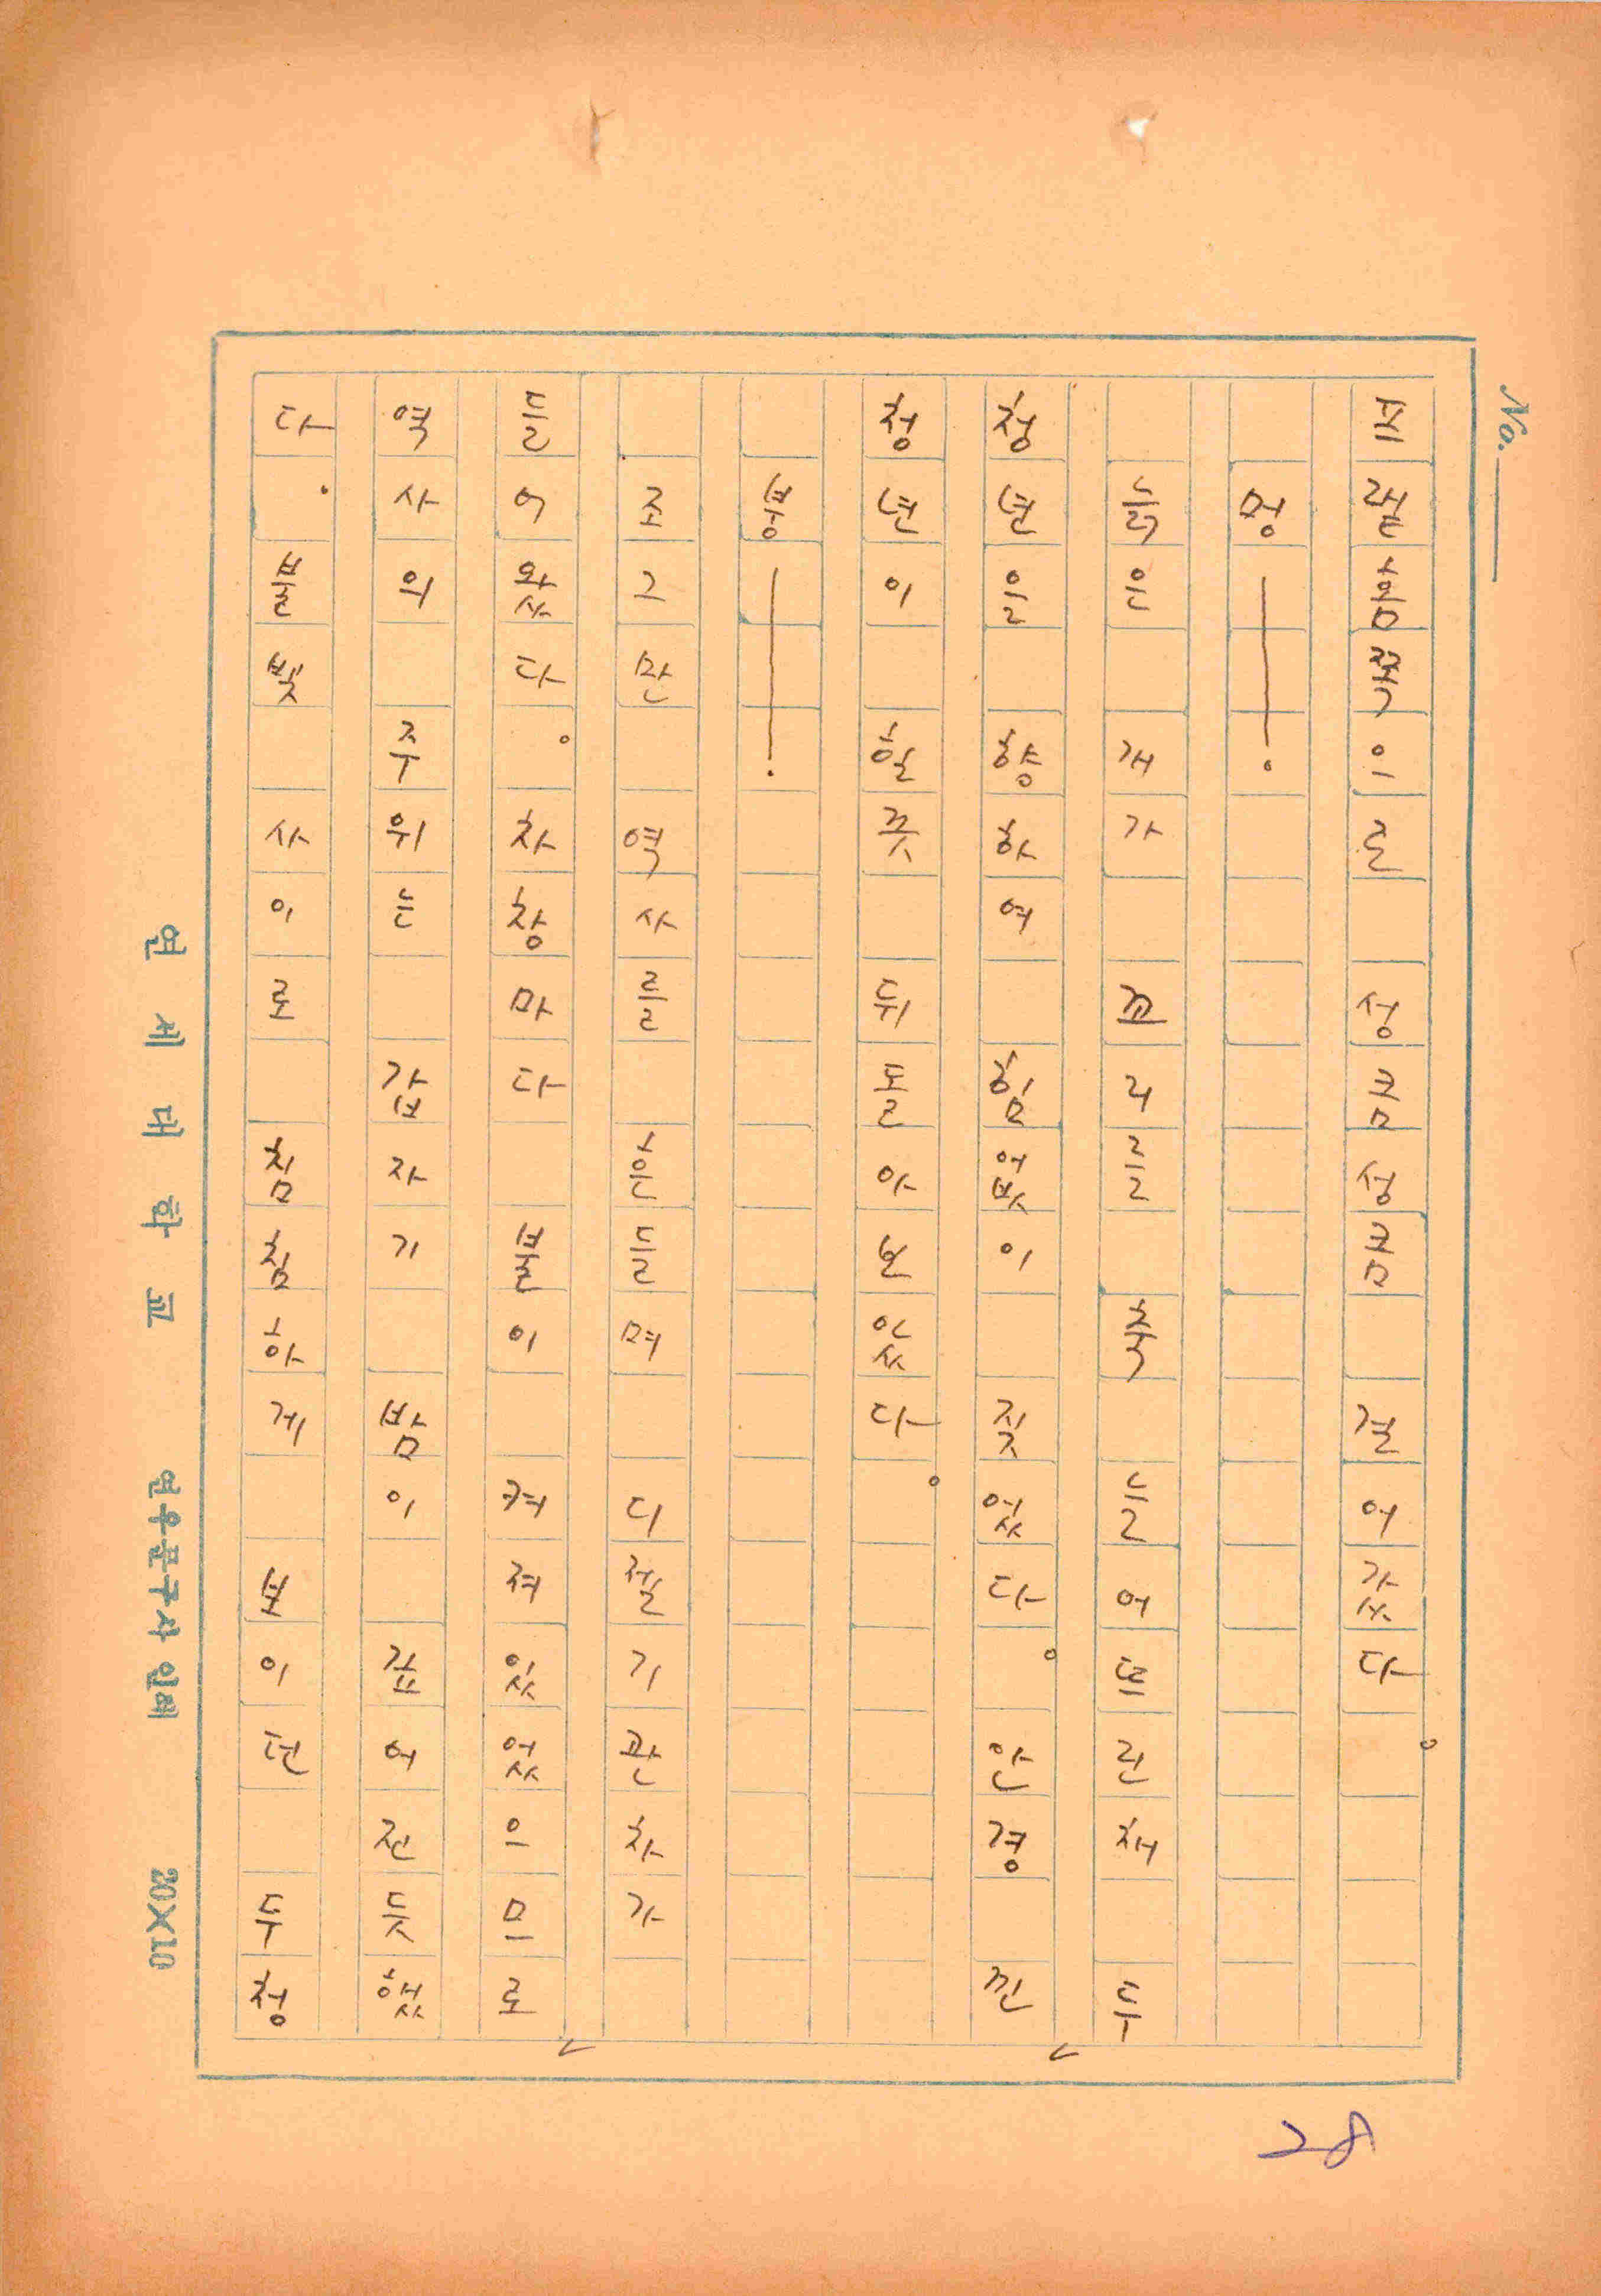 성큼성큼 걸어갔다。
멍———。
늙은 개가 꼬리를 축 늘어뜨린채 두
청년을 향하여 힘없이 짖었다。안경 낀
청년이 흘끗 뒤돌아보았다。
붕———.
조그만 역사를 흔들며 디젤기관차가
들어왔다。차창마다 불이 켜져있었으므로
역사의 주위는 갑자기 밤이 깊어진듯했
다. 불빛 사이로 침침하게 보이던 두 청
No.
연세대학교 연우문구사 인쇄 20X10
28